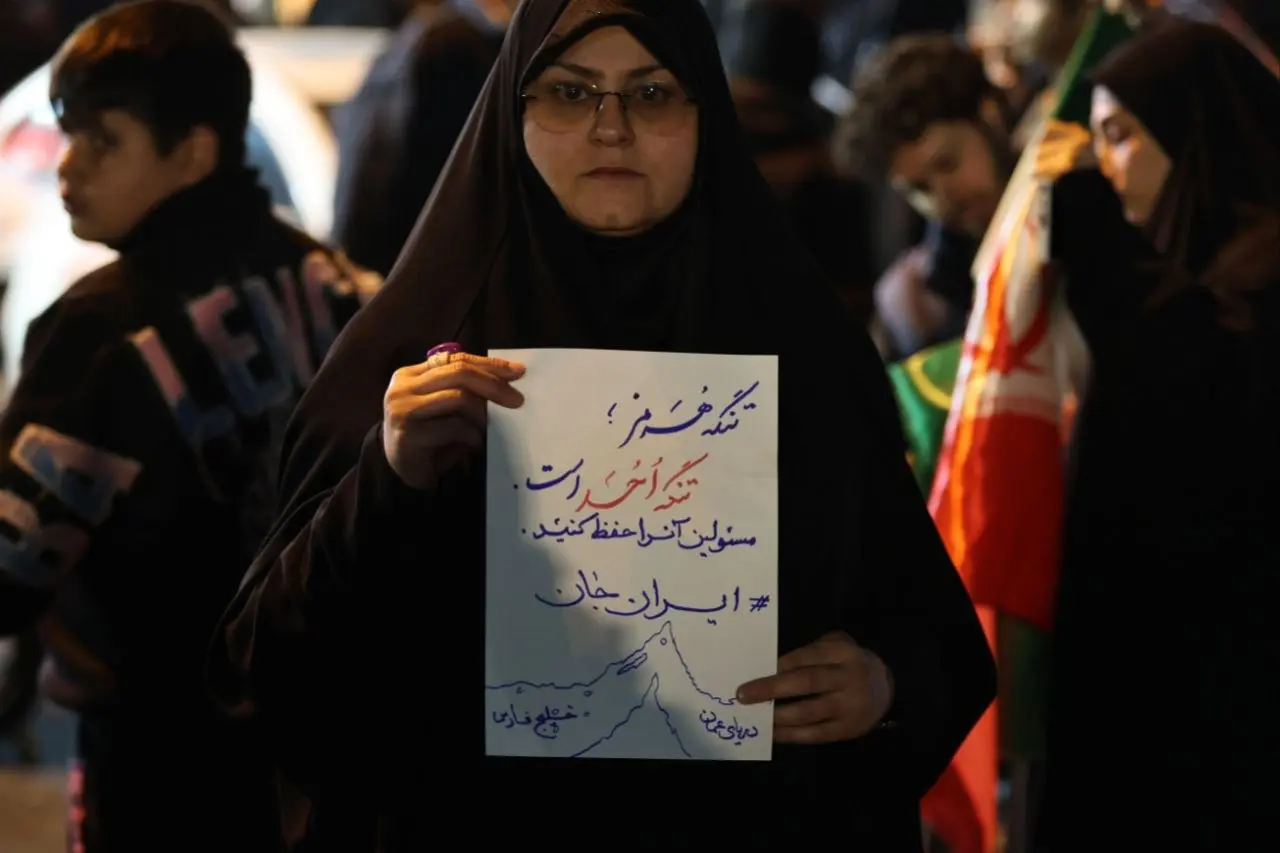 تنگه هُرمز؛
تنگه اُحُد است.
مسئولین آنرا حفظ کنید.
# ایران جان
خلیج فارس
دریای عمان